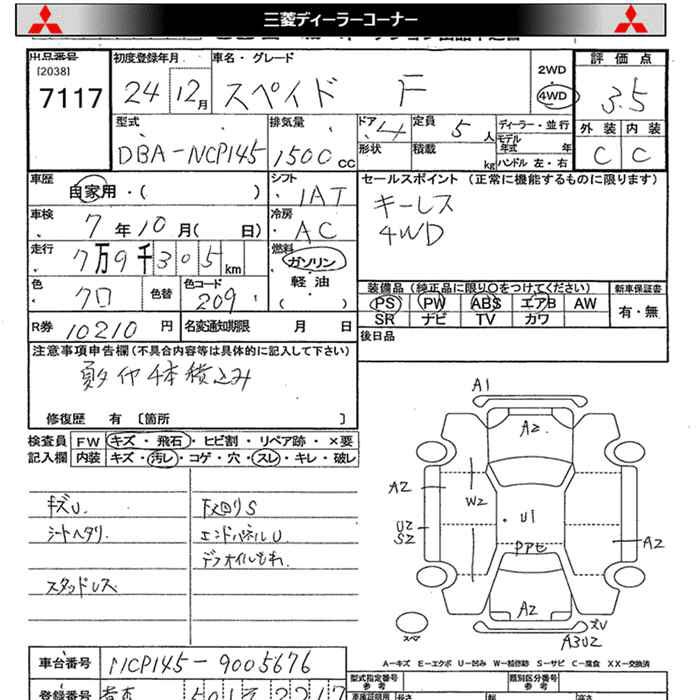 三菱ディーラーコーナー
出品番号 初度登録年月 車名・グレード 2WD 評価点
[2038]
7117 24 12月 スペイド F 4WD 3.5
型式 排気量 ドア 4 定員 5人 ディーラー・並行 外装 内装
DBA-NCP145 1500cc 形状 積載 kg モデル年式 年 C C
ハンドル 左・右
車歴 自家用・( ) シフト 1AT セールスポイント (正常に機能するものに限ります)
車検 7年10月( 日) 冷房 AC キーレス
4WD
走行 7万9千305km 燃料 ガソリン
軽油
・( )
色 クロ 色替 色コード 209 装備品 (純正品に限り○をつけてください) 新車保証書
PS PW ABS エアB AW 有・無
SR ナビ TV カワ
R券 10210円 名変通知期限 月 日 後日品
注意事項申告欄(不具合内容等は具体的に記入して下さい)
夏タイヤ4本積込み
修復歴 有 〔箇所 〕
検査員 FW キズ・飛石・ヒビ割・リペア跡・×要
記入欄 内装 キズ・汚レ・コゲ・穴・スレ・キレ・破レ
キズU. 下廻りS
シートヘタリ. エンドパネルU
デフオイルもれ
スタッドレス
A1
A2
A2
W2
U1
U2
S2
A2
Pアセ
A2
スペア
ズレ
A3U2
A-キズ E-エクボ U-凹み W-補修跡 S-サビ C-腐食 XX-交換済
車台番号 NCP145-9005676
型式指定番号 類別区分番号
参考 参考
登録番号 501 2217
車庫証明用 長さ 幅 高さ